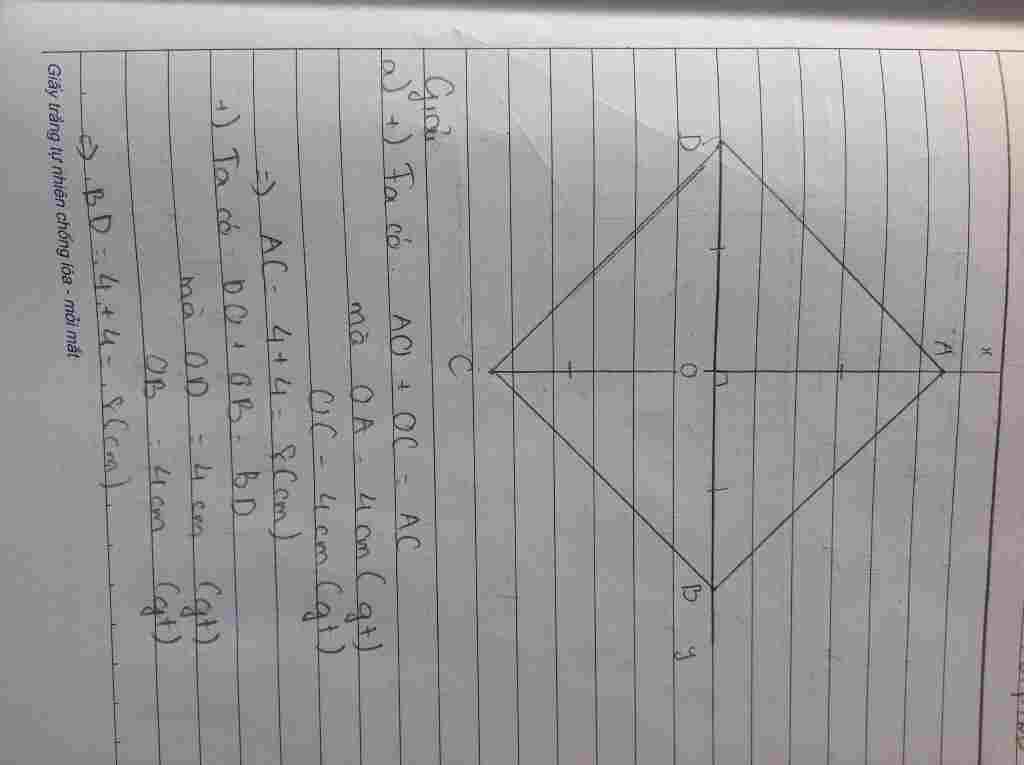 x
A
D
O
B
y
C
Giải
a) +) Ta có: AO + OC = AC
mà OA = 4cm (gt)
OC = 4cm (gt)
=> AC = 4+4 = 8(cm)
+) Ta có: DO + OB = BD
mà OD = 4cm (gt)
OB = 4cm (gt)
=> BD = 4+4 = 8(cm)
Giấy trắng tự nhiên chống lóa - mỏi mắt